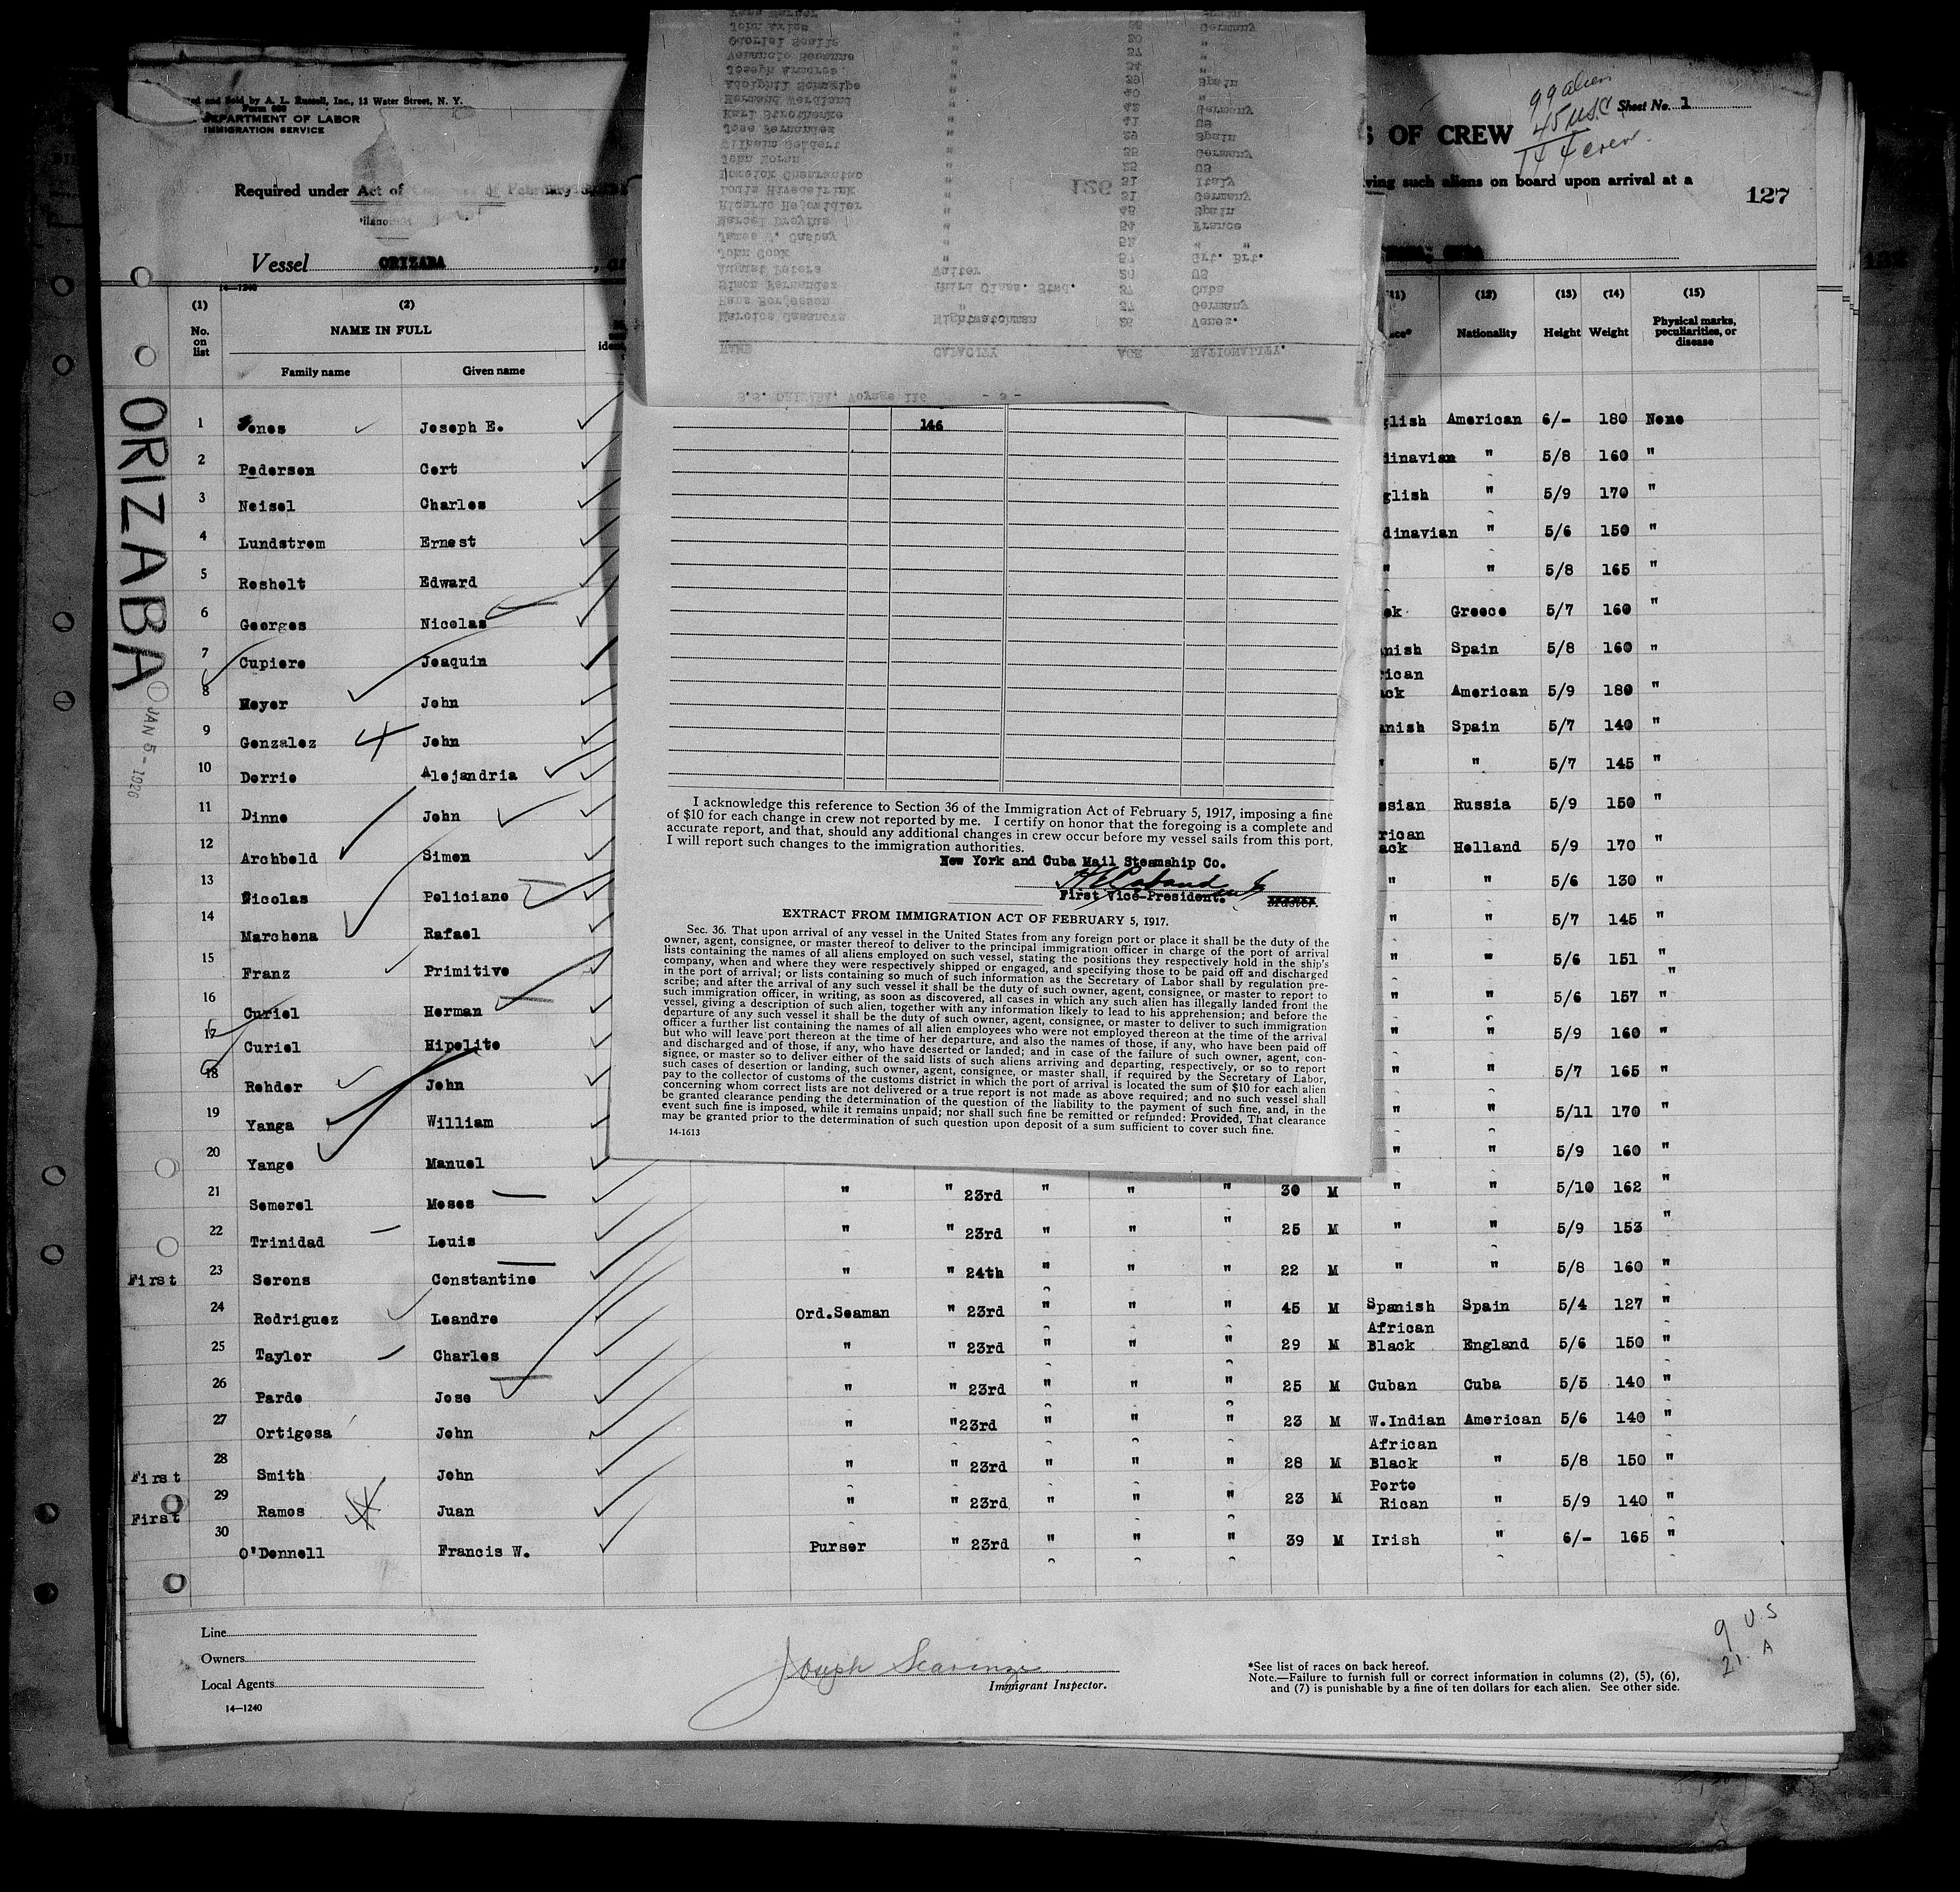 ed and Sold by A. L. Russell, Inc., 13 Water Street, N. Y.
Form 680
DEPARTMENT OF LABOR
IMMIGRATION SERVICE
S OF CREW
99 alien
45 USC
144 crew.
Sheet No. 1
Required under Act of
ving such aliens on board upon arrival at a
127
Vessel ORIZABA
14-1240
(1) (2) (11) (12) (13) (14) (15)
No. on list NAME IN FULL Nationality Height Weight Physical marks, peculiarities, or disease
Family name Given name
ORIZABA
JAN 5 - 1926
1 Jones Joseph E. glish American 6/- 180 None
2 Pedersen Cert dinavian " 5/8 160 "
3 Neisel Charles glish " 5/9 170 "
4 Lundstrom Ernest dinavian " 5/6 150 "
5 Resholt Edward " " 5/8 165 "
6 Georges Nicolas ek Greece 5/7 160 "
7 Cupiero Joaquin nish Spain 5/8 160 "
8 Meyer John rican ack American 5/9 180 "
9 Gonzalez John anish Spain 5/7 140 "
10 Dorrio Alejandria " " 5/7 145 "
11 Dinne John ssian Russia 5/9 150 "
12 Archbold Simon rican ack Holland 5/9 170 "
13 Nicolas Policiano " " 5/6 130 "
14 Marchena Rafael " " 5/7 145 "
15 Franz Primitivo " " 5/6 151 "
16 Curiel Herman " " 5/6 157 "
17 Curiel Hipolito " " 5/9 160 "
18 Rohder John " " 5/7 165 "
19 Yanga William " " 5/11 170 "
20 Yange Manuel " " 5/9 160 "
21 Semerel Moses " " 23rd " " " 30 M " " 5/10 162 "
22 Trinidad Louis " " 23rd " " " 25 M " " 5/9 153 "
First 23 Serens Constantine " " 24th " " " 22 M " " 5/8 160 "
24 Rodriguez Leandro Ord.Seaman " 23rd " " " 45 M Spanish Spain 5/4 127 "
25 Tayler Charles " " 23rd " " " 29 M African Black England 5/6 150 "
26 Pardo Jose " " 23rd " " " 25 M Cuban Cuba 5/5 140 "
27 Ortigosa John " "23rd " " " 23 M W.Indian American 5/6 140 "
First 28 Smith John " " 23rd " " " 28 M African Black " 5/8 150 "
First 29 Ramos Juan " " 23rd " " " 23 M Porto Rican " 5/9 140 "
30 O'Donnell Francis W. Purser " 23rd " " " 39 M Irish " 6/- 165 "
S.S. ORIZABA, Voyage 116 - 3 -
NAME CAPACITY AGE NATIONALITY.
Marcios Casanova Nightwatchman 25 Venez.
Hans Borjesson " 37 Germany
Simon Fernandez Third Class. Stwd. 37 Cuba
August Peters Waiter 26 US
John Cook " 57 Grt. Brt.
James W. " 52 " "
Marcel Dreyfus " 54 France
Ricardo " 45 Spain
Louis " 31 Germany
" 31 Italy
John Moran " 25 US
Wilhelm " 35 Germany
Jose Fernandez " 29 Spain
Karl " 41 US
" 42 Germany
" 40 "
" 39 Spain
Joseph " 34 "
" 37 "
" 30 "
John Kries " Germany
126
146
I acknowledge this reference to Section 36 of the Immigration Act of February 5, 1917, imposing a fine
of $10 for each change in crew not reported by me. I certify on honor that the foregoing is a complete and
accurate report, and that, should any additional changes in crew occur before my vessel sails from this port,
I will report such changes to the immigration authorities.
New York and Cuba Mail Steamship Co.
First Vice-President.
Master.
EXTRACT FROM IMMIGRATION ACT OF FEBRUARY 5, 1917.
Sec. 36. That upon arrival of any vessel in the United States from any foreign port or place it shall be the duty of the
owner, agent, consignee, or master thereof to deliver to the principal immigration officer in charge of the port of arrival
lists containing the names of all aliens employed on such vessel, stating the positions they respectively hold in the ship's
company, when and where they were respectively shipped or engaged, and specifying those to be paid off and discharged
in the port of arrival; or lists containing so much of such information as the Secretary of Labor shall by regulation pre-
scribe; and after the arrival of any such vessel it shall be the duty of such owner, agent, consignee, or master to report to
such immigration officer, in writing, as soon as discovered, all cases in which any such alien has illegally landed from the
vessel, giving a description of such alien, together with any information likely to lead to his apprehension; and before the
departure of any such vessel it shall be the duty of such owner, agent, consignee, or master to deliver to such immigration
officer a further list containing the names of all alien employees who were not employed thereon at the time of the arrival
but who will leave port thereon at the time of her departure, and also the names of those, if any, who have been paid off
and discharged and of those, if any, who have deserted or landed; and in case of the failure of such owner, agent, con-
signee, or master so to deliver either of the said lists of such aliens arriving and departing, respectively, or so to report
such cases of desertion or landing, such owner, agent, consignee, or master shall, if required by the Secretary of Labor,
pay to the collector of customs of the customs district in which the port of arrival is located the sum of $10 for each alien
concerning whom correct lists are not delivered or a true report is not made as above required; and no such vessel shall
be granted clearance pending the determination of the question of the liability to the payment of such fine, and, in the
event such fine is imposed, while it remains unpaid; nor shall such fine be remitted or refunded: Provided, That clearance
may be granted prior to the determination of such question upon deposit of a sum sufficient to cover such fine.
14-1613
Line
Owners
Local Agents
14—1240
Joseph
Immigrant Inspector.
*See list of races on back hereof.
Note.—Failure to furnish full or correct information in columns (2), (5), (6),
and (7) is punishable by a fine of ten dollars for each alien. See other side.
9 U.S
21. A